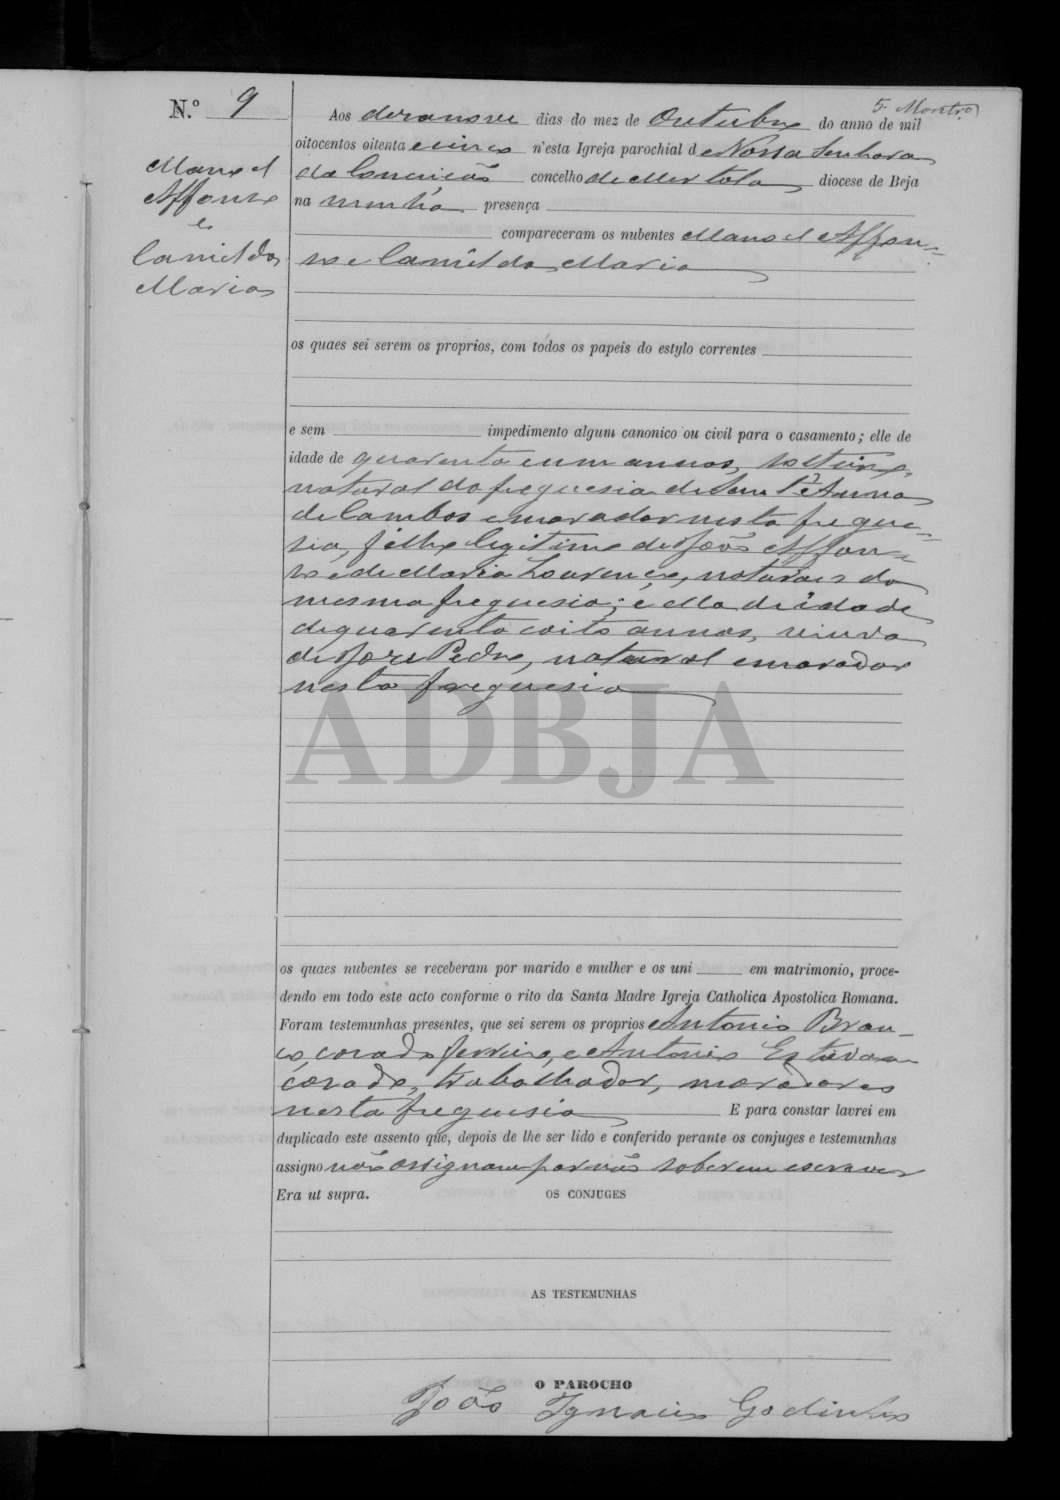 N.º 9
5. Montro
Manoel
Affonso
e
Camilda
Maria
Aos deranove dias do mez de Outubro do anno de mil
oitocentos oitenta e cinco n'esta Igreja parochial de Nossa Senhora
da Conceição concelho de Mertola diocese de Beja
na minha presença
compareceram os nubentes Manoel Affon-
so e Camilda Maria
os quaes sei serem os proprios, com todos os papeis do estylo correntes
e sem impedimento algum canonico ou civil para o casamento; elle de
idade de quarenta e um annos, solteiro,
natural da freguesia de Sant'Anna
de Cambas e morador nesta fregue-
sia, filho legitimo de João Affon-
so e de Maria Lourença, naturaes da
mesma freguesia; e ella de idade
de quarenta e oito annos, viuva
de José Pedro, natural e morador
nesta freguesia
ADBJA
os quaes nubentes se receberam por marido e mulher e os uni em matrimonio, proce-
dendo em todo este acto conforme o rito da Santa Madre Igreja Catholica Apostolica Romana.
Foram testemunhas presentes, que sei serem os proprios Antonio Bran-
co, casado, ferreiro, e Antonio Estevam
casado, trabalhador, moradores
nesta freguesia E para constar lavrei em
duplicado este assento que, depois de lhe ser lido e conferido perante os conjuges e testemunhas
assigno não assignam por não saberem escrever
Era ut supra. OS CONJUGES
AS TESTEMUNHAS
O PAROCHO
João Ignacio Godinho